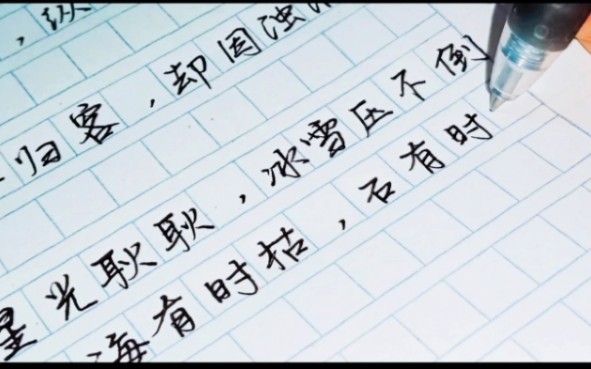 ，纵
归客，却因浊
星光耿耿，冰雪压不倒
海有时枯，石有时